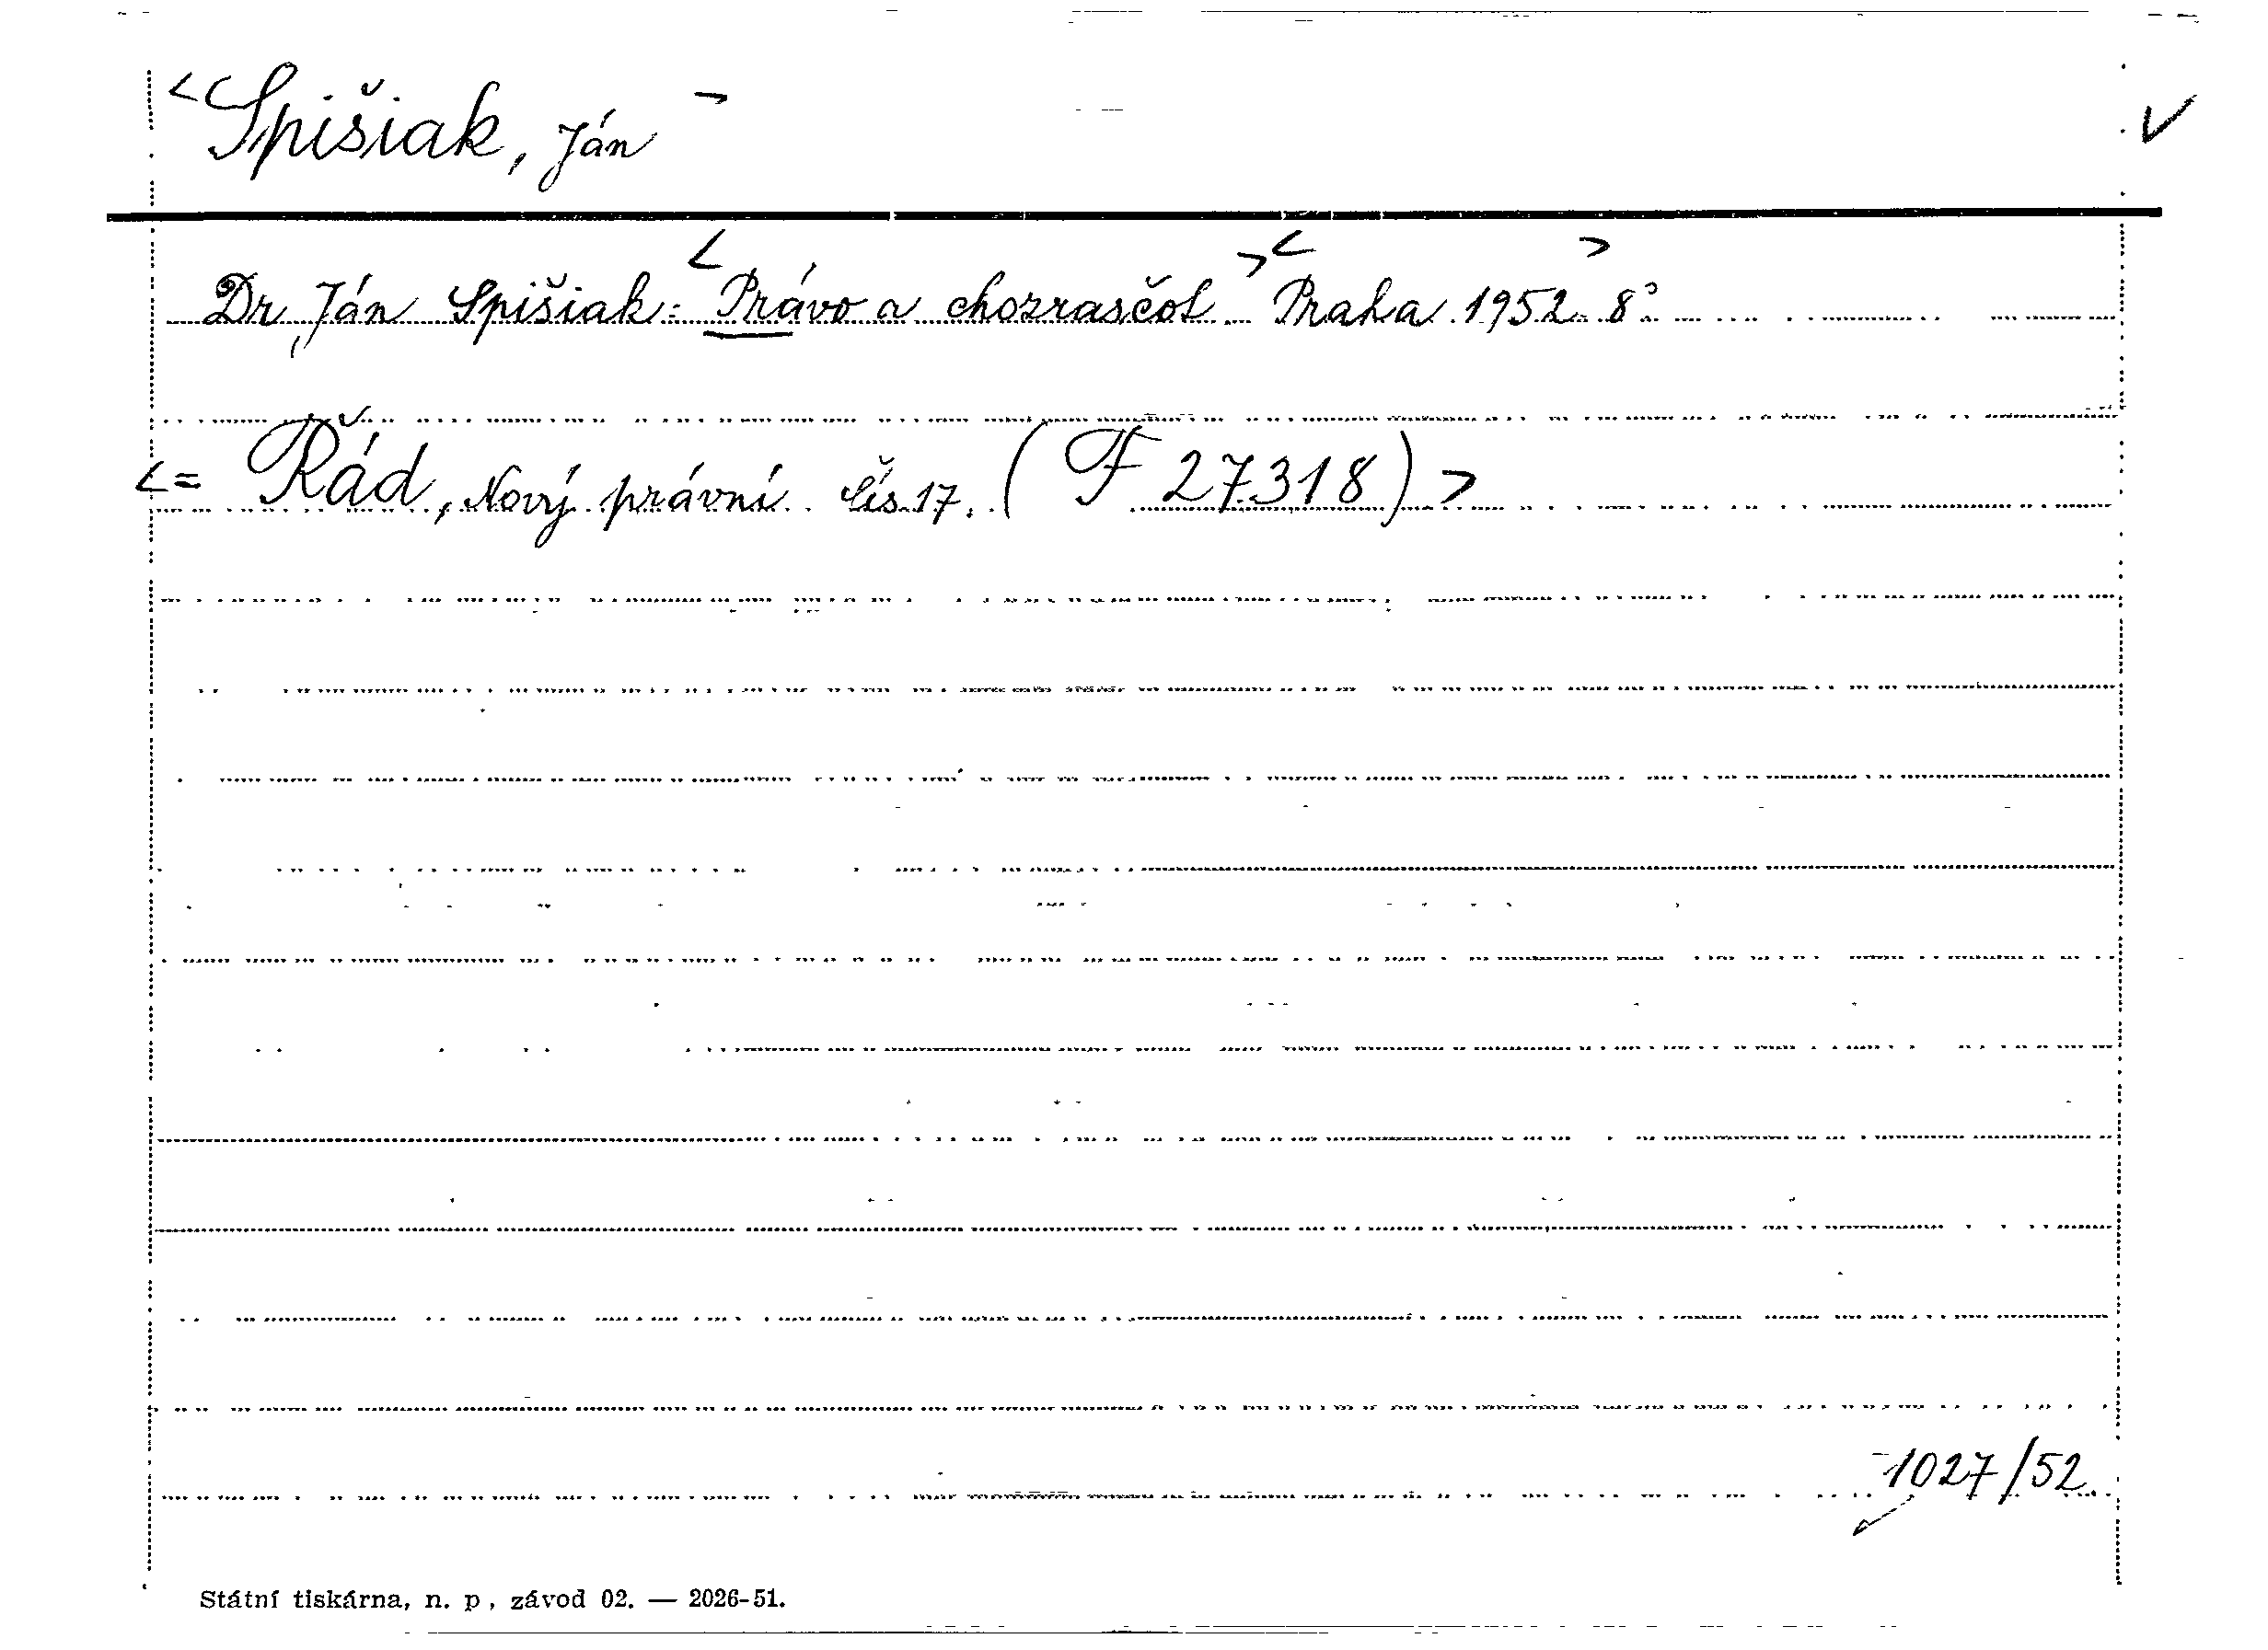 <Spišiak, Ján >
V
Dr. Ján Spišiak: <Právo a chozrasčot.> <Praha 1952.> 8°
<= Řád, Nový právní čís. 17. (F 27318)>
1027/52.
Státní tiskárna, n. p., závod 02. — 2026-51.